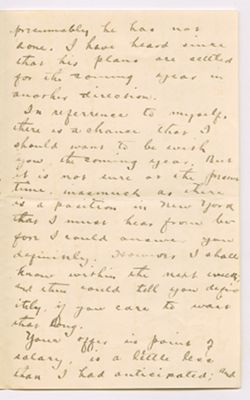 presumably he has not
done. I have heard since
that his plans are settled
for the coming year in
another direction.
In referrence to myself,
there is a chance that I
should want to be with
you the coming year. But
it is not sure at the present
time, inasmuch as there
is a position in New York
that I must hear from be-
fore I could answer you
definitely. However I shall
know within the next week,
and then could tell you defin-
itely, if you care to wait
that long.
Your offer in point of
salary, is a little less
than I had anticipated; and